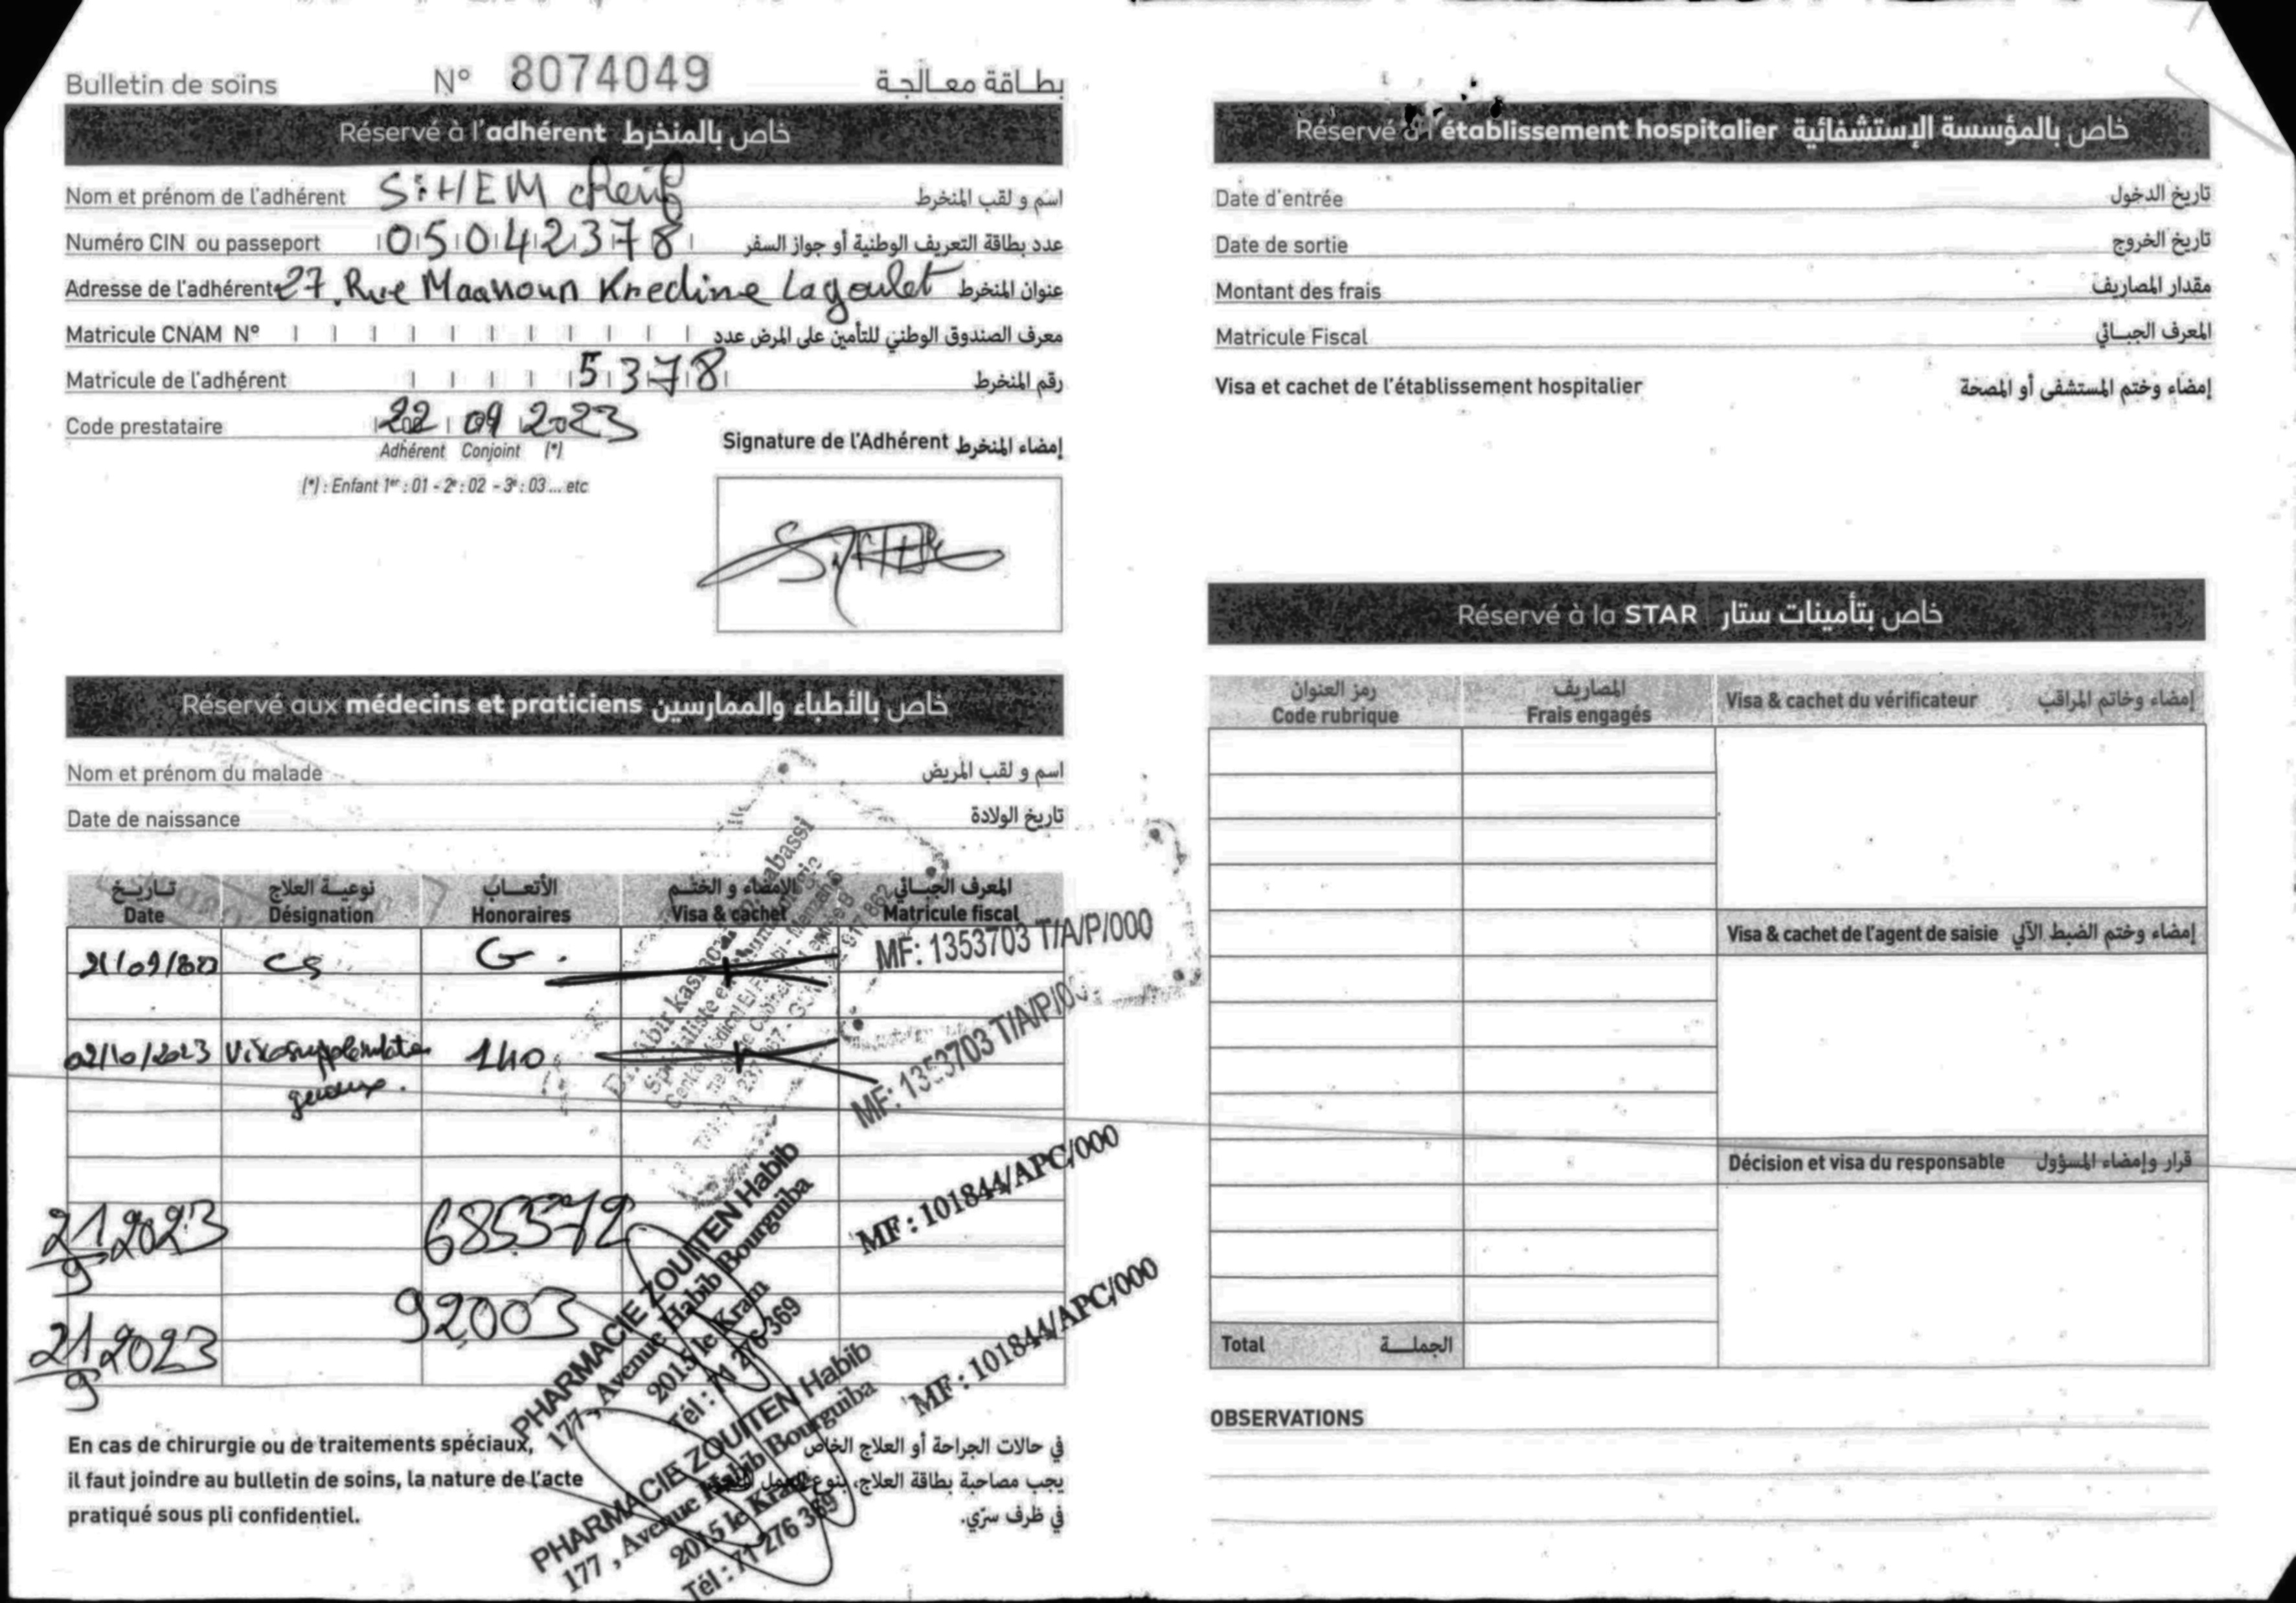 Bulletin de soins N° 8074049 بطاقة معالجة
Réservé à l'adhérent خاص بالمنخرط
Nom et prénom de l'adhérent SIHEM cherif اسم و لقب المنخرط
Numéro CIN ou passeport 05042378 عدد بطاقة التعريف الوطنية أو جواز السفر
Adresse de l'adhérent 27. Rue Maanoun Kredine Lagoulet عنوان المنخرط
Matricule CNAM N° معرف الصندوق الوطني للتأمين على المرض عدد
Matricule de l'adhérent 5378 رقم المنخرط
Code prestataire 22 09 2023
Adhérent Conjoint (*)
(*) : Enfant 1er : 01 - 2e : 02 - 3e : 03 ... etc
Signature de l'Adhérent إمضاء المنخرط
Réservé aux médecins et praticiens خاص بالأطباء والممارسين
Nom et prénom du malade اسم و لقب المريض
Date de naissance تاريخ الولادة
تاريخ نوعية العلاج الأتعاب الإمضاء و الختم المعرف الجبائي
Date Désignation Honoraires Visa & cachet Matricule fiscal
21/09/ CS G. MF: 1353703 T/A/P/000
02/10/2023 140 MF: 1353703 T/A/P/0
21/9 2023 685572 MF : 101844/APC/000
21/9 2023 92003 MF : 101844/APC/000
PHARMACIE ZOUITEN Habib
177 , Avenue Habib Bourguiba
2015 le Kram
Tél : 71 276 369
PHARMACIE ZOUITEN Habib
177 , Avenue Habib Bourguiba
2015 le Kram
Tél : 71 276 369
En cas de chirurgie ou de traitements spéciaux, في حالات الجراحة أو العلاج الخاص
il faut joindre au bulletin de soins, la nature de l'acte يجب مصاحبة بطاقة العلاج، بنوع
pratiqué sous pli confidentiel. في ظرف سرّي.
Réservé à l'établissement hospitalier خاص بالمؤسسة الإستشفائية
Date d'entrée تاريخ الدخول
Date de sortie تاريخ الخروج
Montant des frais مقدار المصاريف
Matricule Fiscal المعرف الجبائي
Visa et cachet de l'établissement hospitalier إمضاء وختم المستشفى أو المصحة
Réservé à la STAR خاص بتأمينات ستار
رمز العنوان المصاريف
Code rubrique Frais engagés Visa & cachet du vérificateur إمضاء وخاتم المراقب
Visa & cachet de l'agent de saisie إمضاء وختم الضبط الآلي
Décision et visa du responsable قرار وإمضاء المسؤول
Total الجملة
OBSERVATIONS